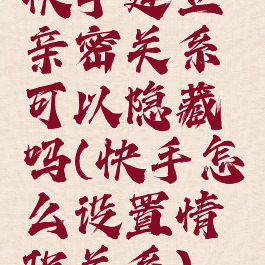 快手建立
亲密关系
可以隐藏
吗(快手怎
么设置情